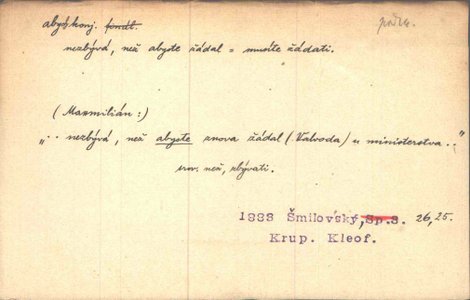 aby, konj. fondt.
nezbývá, než abyste žádal = musíte žádati.
(Maxmilián:)
„.. nezbývá, než abyste znova žádal (Valvoda) u ministerstva .."
srov. než, zbývati.
1883 Šmilovský, Sp.S. 26, 25.
Krup. Kleof.